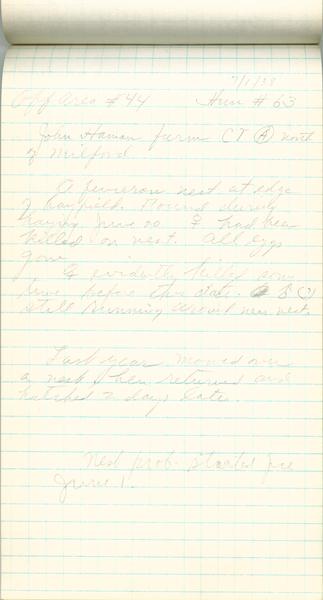 7/1/39
Off area #44 Hun # 63
John Haman farm CT (A) north
of Milford
A Hun nest at edge
of hayfield. Found during
haying June 20 ♀ had been
killed on nest. All eggs
gone
♀ evidently killed some
time before this date. ♂ (?)
still running around near nest.
Last year mowed over
a nest & hen returned and
hatched 2 days later.
Nest prob. started pre
June 1.